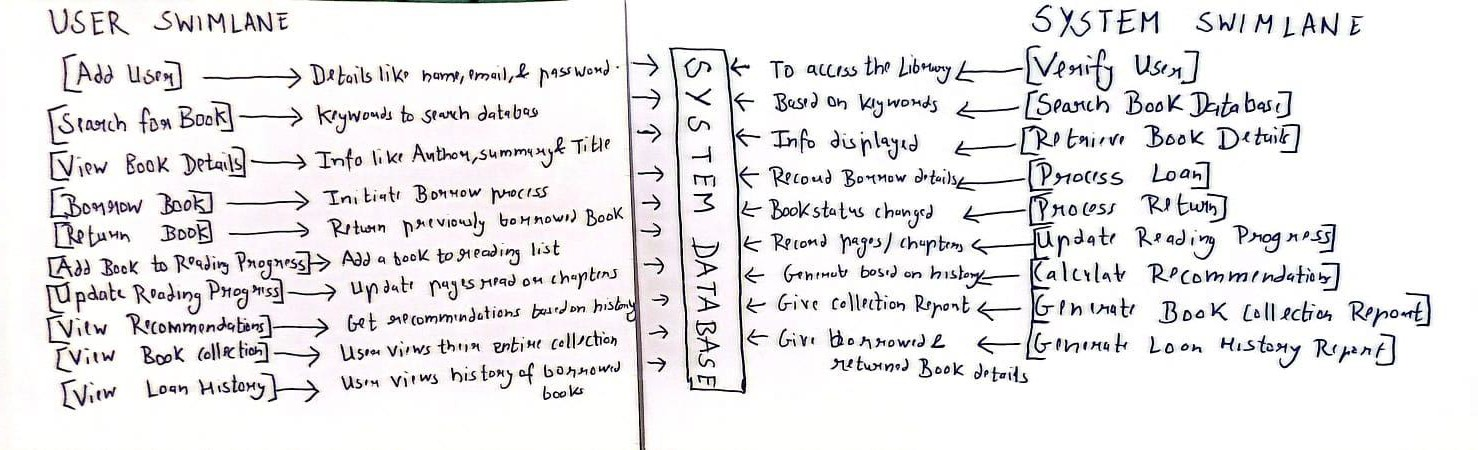 USER SWIMLANE
[Add User] → Details like name, email, & password. →
[Search for Book] → Keywords to search databas →
[View Book Details] → Info like Author, summary & Title →
[Borrow Book] → Initiate Borrow process →
[Return Book] → Return previously borrowed Book →
[Add Book to Reading Progress] → Add a book to reading list →
[Update Reading Progress] → Update pages read or chapters →
[View Recommendations] → Get recommendations based on history →
[View Book Collection] → User views their entire collection →
[View Loan History] → User views history of borrowed books →
SYSTEM DATABASE
SYSTEM SWIMLANE
← To access the Library ← [Verify User]
← Based on Keywords ← [Search Book Database]
← Info displayed ← [Retrieve Book Details]
← Record Borrow details ← [Process Loan]
← Book status changed ← [Process Return]
← Record pages/chapters ← [Update Reading Progress]
← Generate based on history ← [Calculate Recommendation]
← Give collection Report ← [Generate Book Collection Report]
← Give borrowed & ← [Generate Loan History Report]
returned Book details